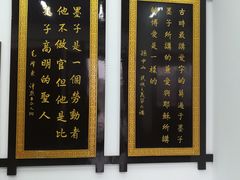 古時最講愛字的莫過于墨子
墨子所講的兼愛與耶穌所講
的博愛是一樣的
孫中山
墨子是一個勞動者
他不做官但他是比
孔子高明的聖人
毛澤東